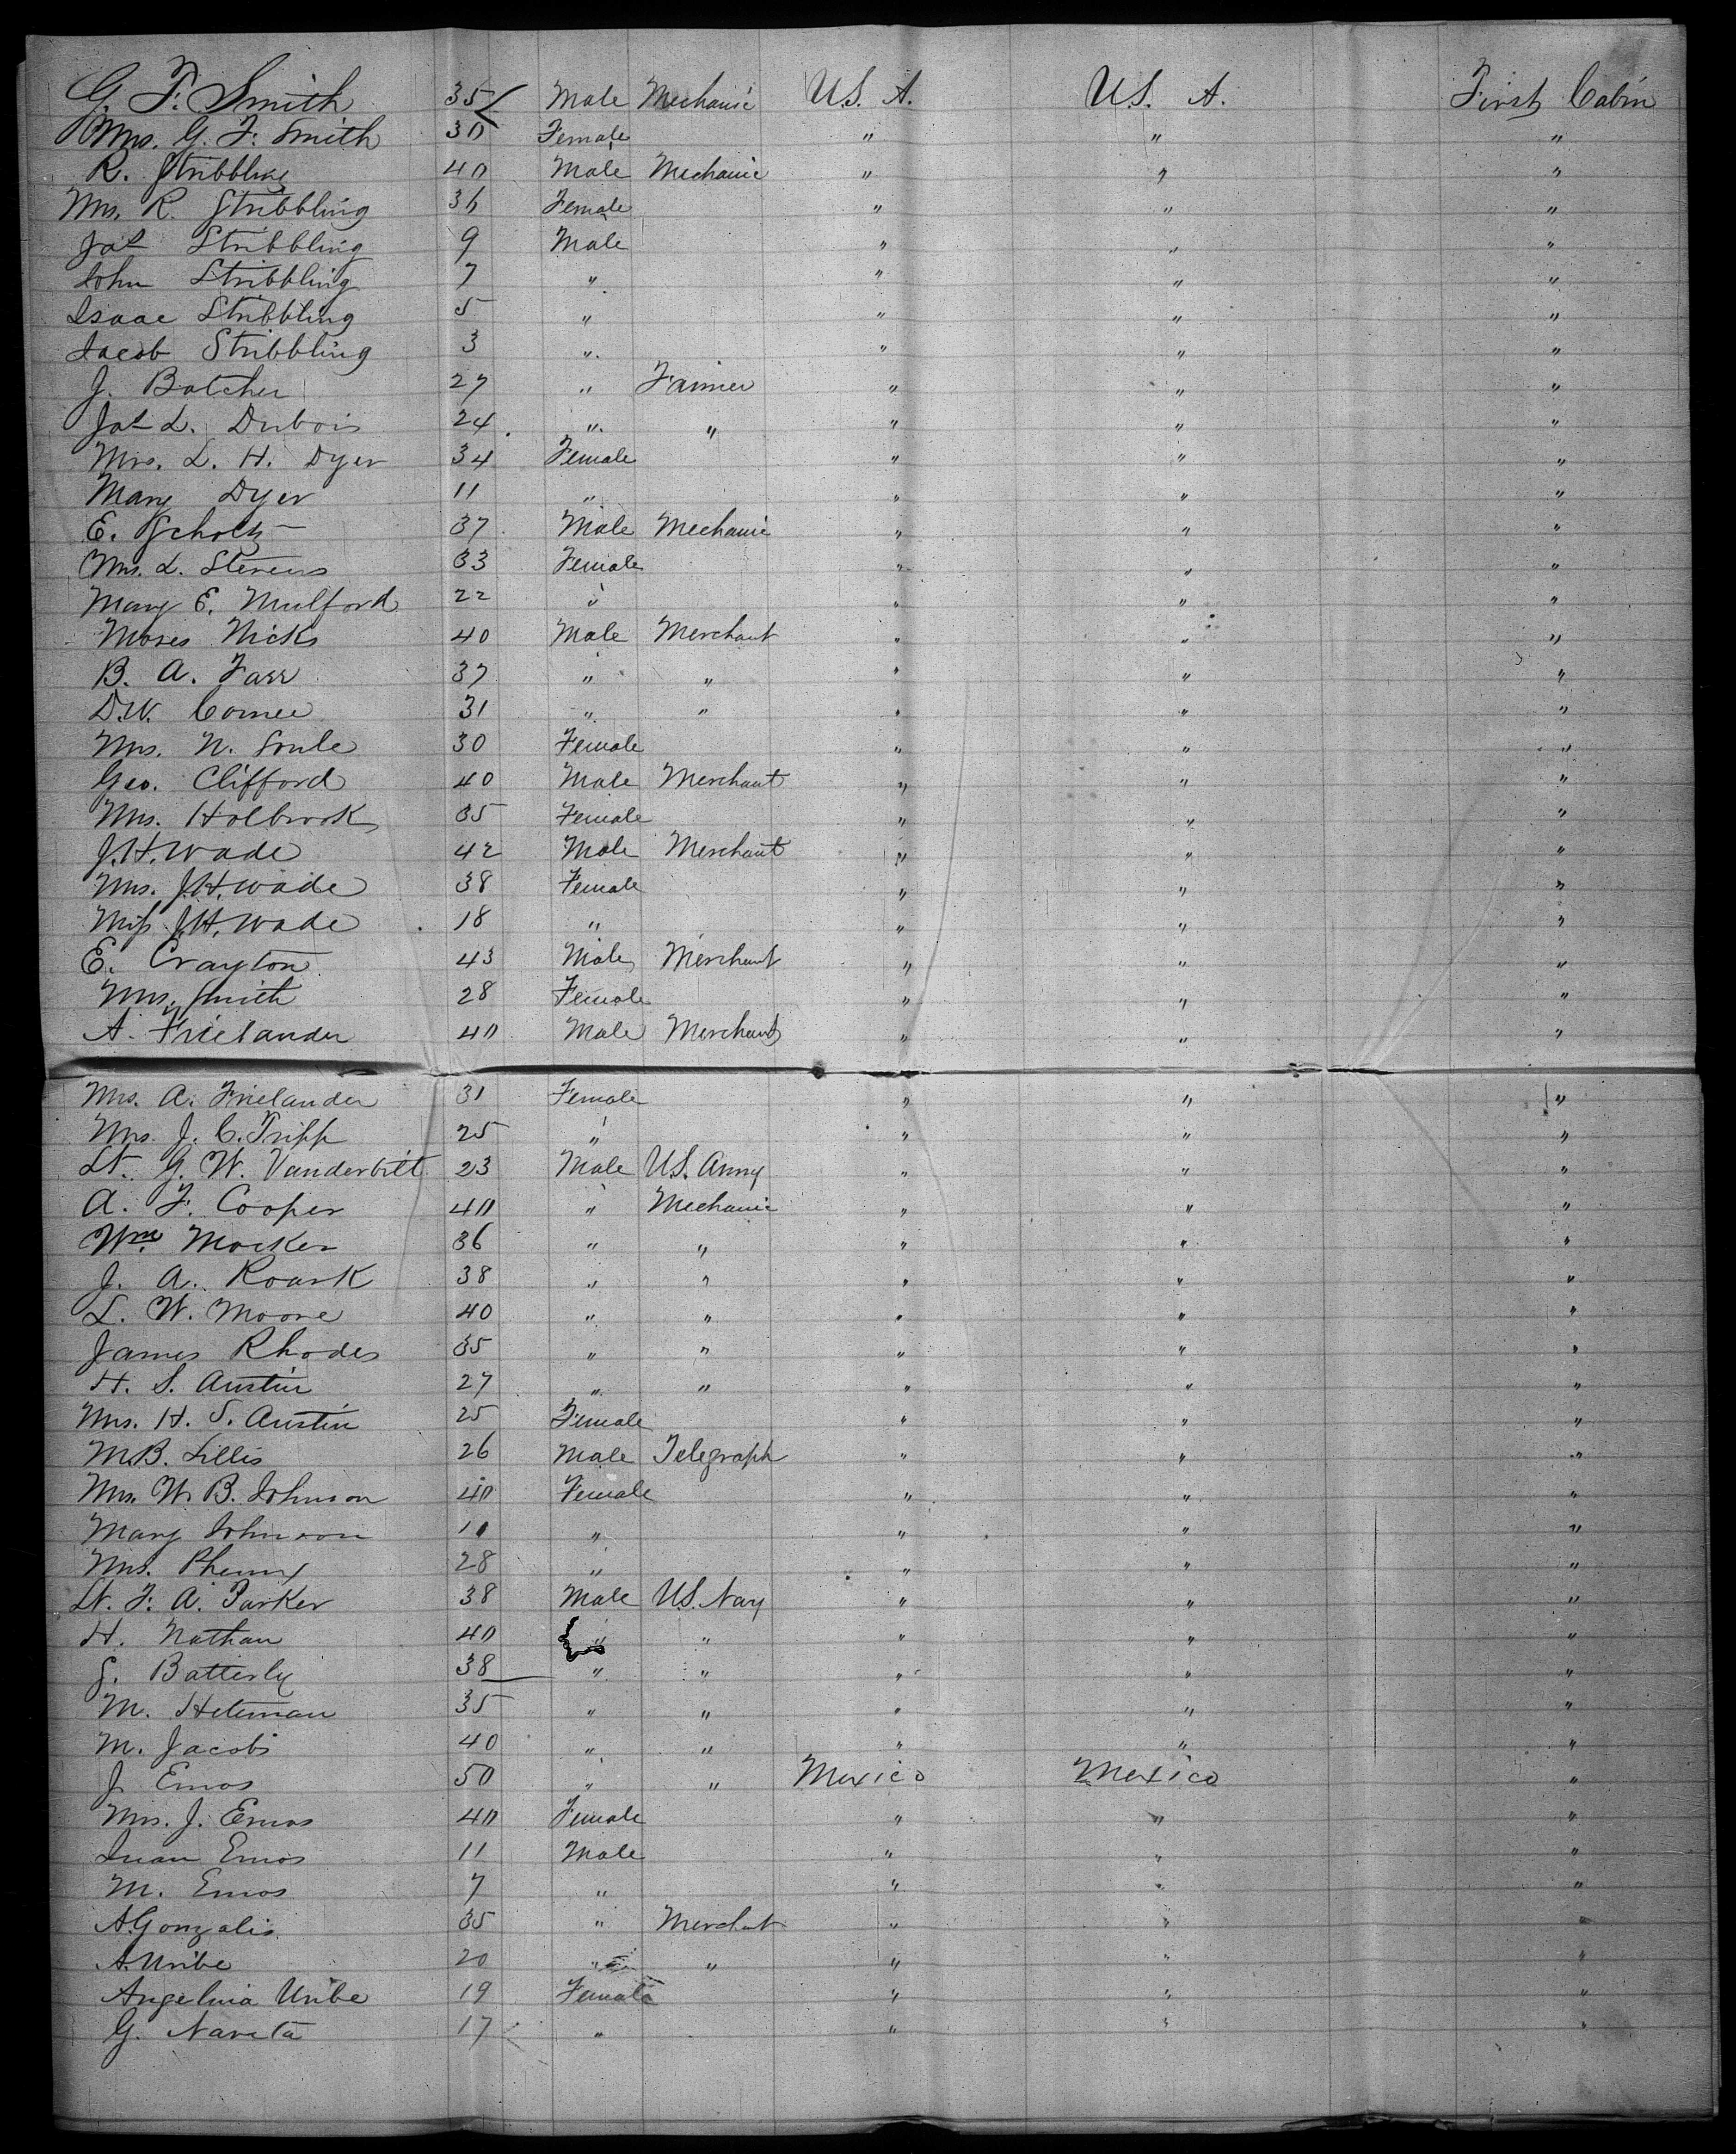 G. F. Smith 35 Male Mechanic U.S. A. U.S. A. First Cabin
Mrs. G. F. Smith 30 Female " " "
R. Stribbling 40 Male Mechanic " " "
Mrs. R. Stribbling 36 Female " " "
Jas Stribbling 9 Male " " "
John Stribbling 7 " " " "
Isaac Stribbling 5 " " " "
Jacob Stribbling 3 " " " "
J. Batcher 27 " Farmer " " "
Jas L. Dubois 24 " " " " "
Mrs. L. H. Dyer 34 Female " " "
Mary Dyer 11 " " " "
E. Scholtz 37 Male Mechanic " " "
Mrs. L. Stevens 33 Female " " "
Mary E. Mulford 22 " " " "
Moses Nicks 40 Male Merchant " " "
B. A. Farr 37 " " " " "
D.W. Comee 31 " " " " "
Mrs. N. Soule 30 Female " " "
Geo. Clifford 40 Male Merchant " " "
Mrs. Holbrook 35 Female " " "
J.H. Wade 42 Male Merchant " " "
Mrs. J.H. Wade 38 Female " " "
Miss J.H. Wade 18 " " " "
E. Crayton 43 Male Merchant " " "
Mrs. Smith 28 Female " " "
A. Frielander 40 Male Merchant " " "
Mrs. A. Frielander 31 Female " " "
Mrs. J. C. Tripp 25 " " " "
Lt. G. W. Vanderbilt 23 Male U.S. Army " " "
A. F. Cooper 40 " Mechanic " " "
Wm. Mocker 36 " " " " "
J. A. Roark 38 " " " " "
L. W. Moore 40 " " " " "
James Rhodes 35 " " " " "
H. S. Austin 27 " " " " "
Mrs. H. S. Austin 25 Female " " "
M.B. Lillis 26 Male Telegraph " " "
Mrs. W. B. Johnson 40 Female " " "
Mary Johnson 11 " " " "
Mrs. 28 " " " "
Lt. F. A. Parker 38 Male U.S. Navy " " "
H. Nathan 40 " " " " "
S. Batterly 38 " " " " "
M. Heteman 35 " " " " "
M. Jacobi 40 " " " " "
J. Emos 50 " " Mexico Mexico "
Mrs. J. Emos 40 Female " " "
Juan Emos 11 Male " " "
M. Emos 7 " " " "
A. Gonzalis 35 " Merchant " " "
A. Uribe 20 " " " " "
Angelina Uribe 19 Female " " "
G. Naveta 17 " " " "